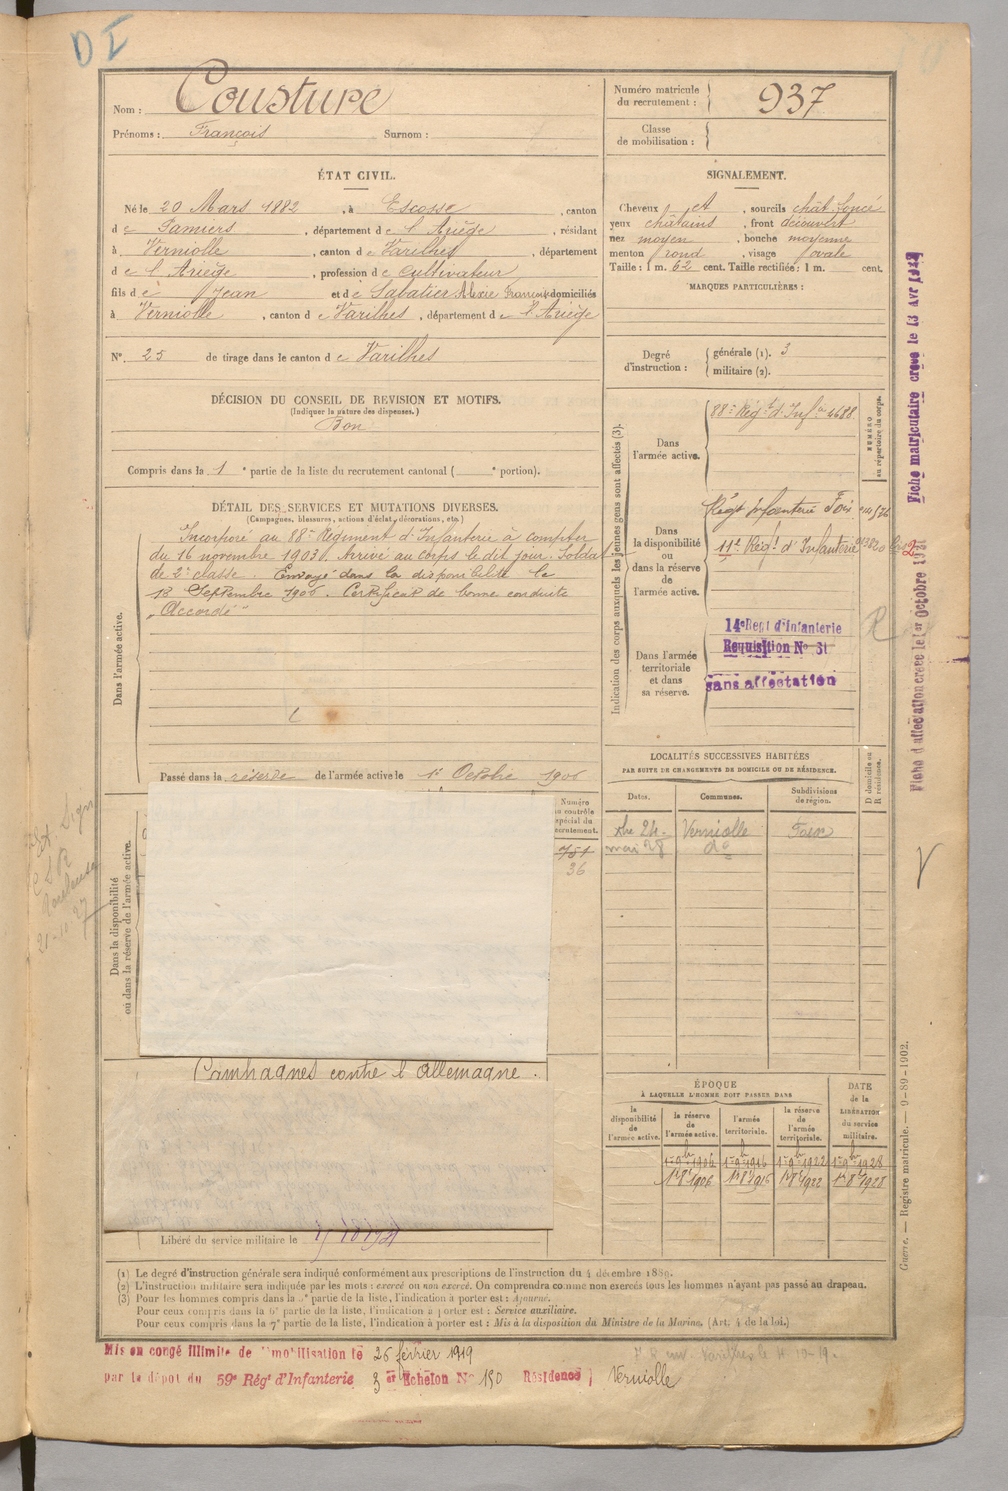 D I
Nom : Cousture
Prénoms : François Surnom :
Numéro matricule
du recrutement : 937
Classe
de mobilisation :
ÉTAT CIVIL.
Né le 20 Mars 1882, à Escosse, canton
de Pamiers, département de l'Ariège, résidant
à Verniolle, canton de Varilhes, département
de l'Ariège, profession de Cultivateur
fils de Jean et de Sabatier Alexie Françoise domiciliés
à Verniolle, canton de Varilhes, département de l'Ariège
N° 25 de tirage dans le canton de Varilhes
SIGNALEMENT.
Cheveux et, sourcils chât. foncé
yeux châtains, front découvert
nez moyen, bouche moyenne
menton rond, visage ovale
Taille : 1 m. 62 cent. Taille rectifiée : 1 m. cent.
MARQUES PARTICULIÈRES :
Degré
d'instruction :
générale (1). 3
militaire (2).
DÉCISION DU CONSEIL DE REVISION ET MOTIFS.
(Indiquer la nature des dispenses.)
Bon
Compris dans la 1e partie de la liste du recrutement cantonal ( e portion).
DÉTAIL DES SERVICES ET MUTATIONS DIVERSES.
(Campagnes, blessures, actions d'éclat, décorations, etc.)
Dans l'armée active.
Incorporé au 88e Régiment d'Infanterie à compter
du 16 novembre 1903. Arrivé au corps le dit jour. Soldat
de 2e classe. Envoyé dans la disponibilité le
18 Septembre 1906. Certificat de bonne conduite
"Accordé"
Passé dans la réserve de l'armée active le 1er Octobre 1906
Indication des corps auxquels les jeunes gens sont affectés (3).
NUMÉRO
au répertoire du corps.
Dans
l'armée active.
88e Régt d'Infie 4688
Dans
la disponibilité
ou
dans la réserve
de
l'armée active.
Régt Infanterie Foix
11e Régt d'Infanterie
Dans l'armée
territoriale
et dans
sa réserve.
14e Regt d'Infanterie
Requisition N° 31
sans affectation
Fiche matriculaire creee le 13 Avr
Fiche d'affectation creee le 1er Octobre 1931
LOCALITÉS SUCCESSIVES HABITÉES
PAR SUITE DE CHANGEMENTS DE DOMICILE OU DE RÉSIDENCE.
Dates. Communes. Subdivisions
de région.
D domicile ou
R résidence.
24 Verniolle Foix
mai 28 do
Dans la disponibilité
ou dans la réserve de l'armée active.
Numéro
au contrôle
spécial du
recrutement.
751
36
Toulouse
21-10-27
Campagnes contre l'Allemagne.
Libéré du service militaire le
ÉPOQUE
À LAQUELLE L'HOMME DOIT PASSER DANS
la
disponibilité
de
l'armée active.
la réserve
de
l'armée active.
l'armée
territoriale.
la réserve
de
l'armée
territoriale.
DATE
de la
LIBÉRATION
du service
militaire.
1er 9bre 1906 1er 9bre 1916 1er 9bre 1922 1er 9bre 1928
1er 8bre 1906 1er 8bre 1916 1er 8bre 1922 1er 8bre 1928
Guerre. — Registre matricule. — 9-89-1902.
(1) Le degré d'instruction générale sera indiqué conformément aux prescriptions de l'instruction du 4 décembre 1889.
(2) L'instruction militaire sera indiquée par les mots : exercé ou non exercé. On comprendra comme non exercés tous les hommes n'ayant pas passé au drapeau.
(3) Pour les hommes compris dans la 5e partie de la liste, l'indication à porter est : Ajourné.
Pour ceux compris dans la 6e partie de la liste, l'indication à porter est : Service auxiliaire.
Pour ceux compris dans la 7e partie de la liste, l'indication à porter est : Mis à la disposition du Ministre de la Marine. (Art. 4 de la loi.)
Mis en congé illimité de démobilisation le 26 février 1919
par le dépôt du 59e Régt d'Infanterie 3er Echelon N° 150 Résidence Verniolle